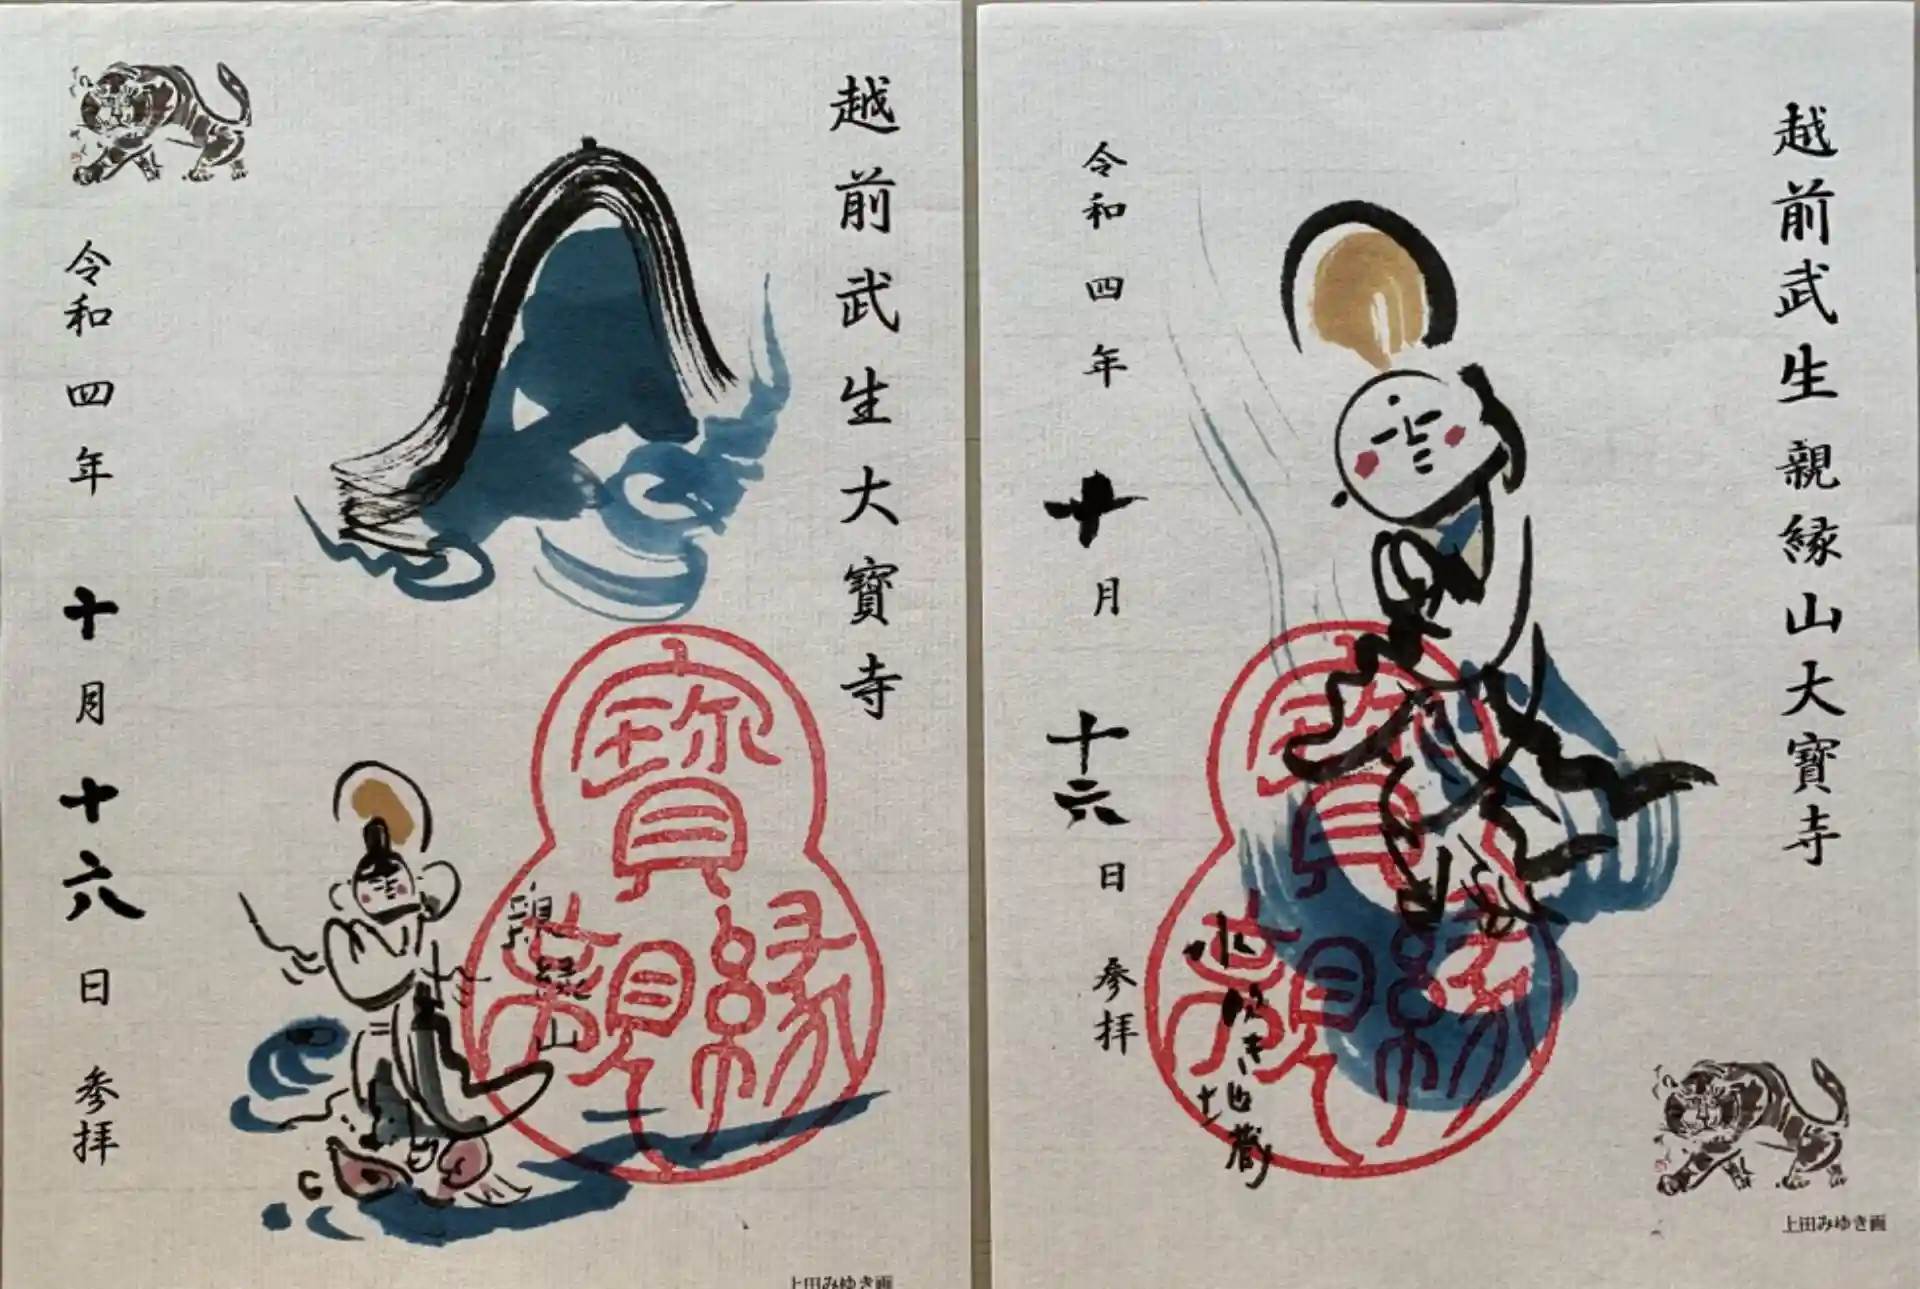 越前武生大寶寺
親縁山
令和四年十月十六日参拝
寶
親縁
上田みゆき画
越前武生親縁山大寶寺
令和四年十月十六日参拝
水引き地蔵
寶
親縁
上田みゆき画